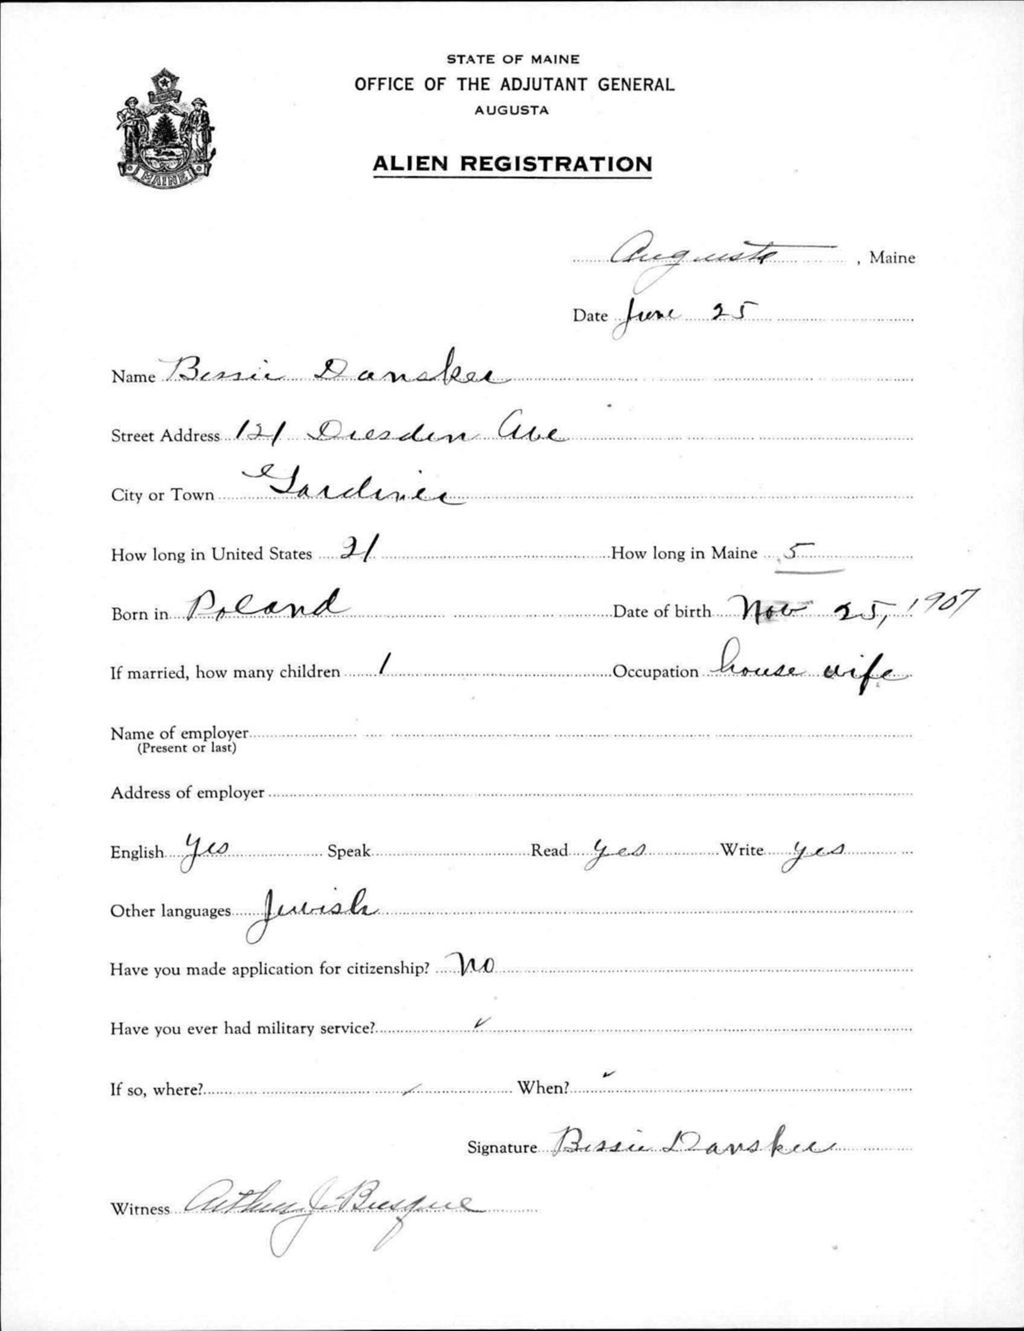 STATE OF MAINE
OFFICE OF THE ADJUTANT GENERAL
AUGUSTA
ALIEN REGISTRATION
MAINE
Augusta, Maine
Date June 25
Name Bessie Dansker
Street Address 121 Dresden Ave
City or Town Gardiner
How long in United States 21 How long in Maine 5
Born in Poland Date of birth Nov 25, 1907
If married, how many children 1 Occupation house wife
Name of employer
(Present or last)
Address of employer
English Yes Speak Read Yes Write yes
Other languages Jewish
Have you made application for citizenship? No
Have you ever had military service? ✓
If so, where? ✓ When? ✓
Signature Bessie Dansker
Witness Arthur J. Busque